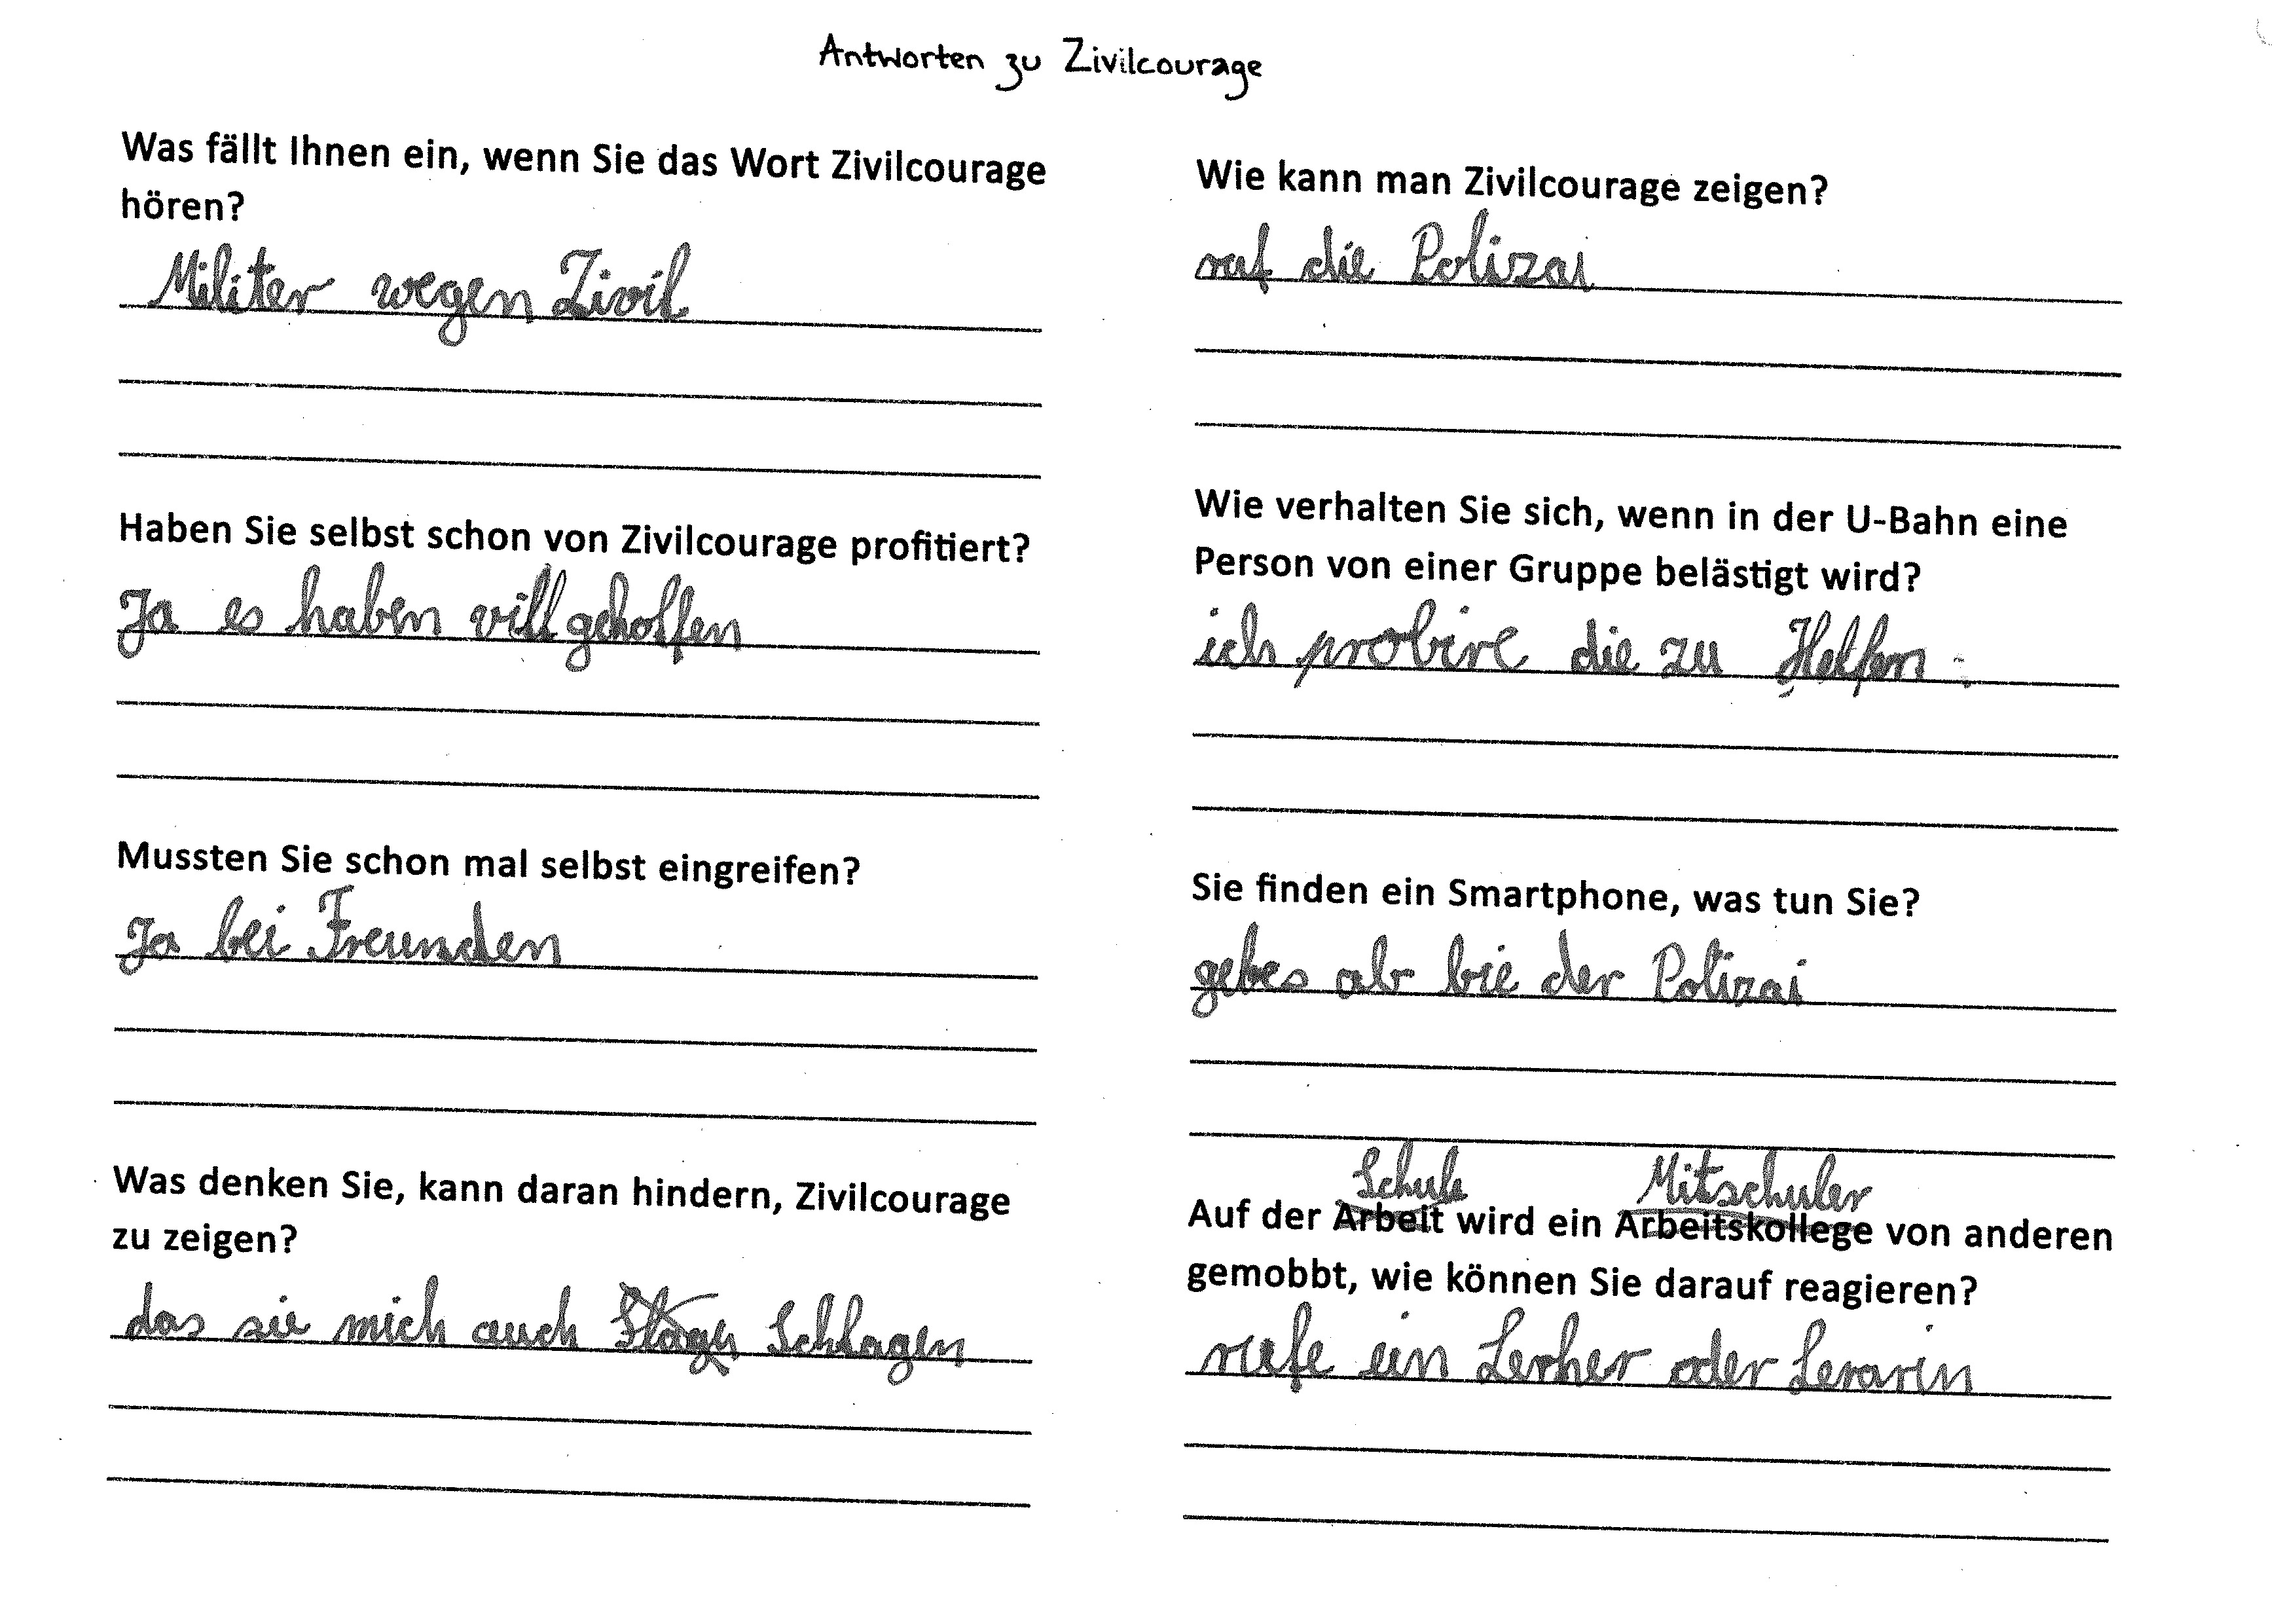 Antworten zu Zivilcourage
Was fällt Ihnen ein, wenn Sie das Wort Zivilcourage
hören?
Militer wegen Zivil
Haben Sie selbst schon von Zivilcourage profitiert?
Ja es haben vill geholfen
Mussten Sie schon mal selbst eingreifen?
Ja bei Freunden
Was denken Sie, kann daran hindern, Zivilcourage
zu zeigen?
das sie mich auch Schlagen
Wie kann man Zivilcourage zeigen?
ruf die Polizai
Wie verhalten Sie sich, wenn in der U-Bahn eine
Person von einer Gruppe belästigt wird?
ich probire die zu Helfen
Sie finden ein Smartphone, was tun Sie?
gebes ab bie der Polizai
Schule Mitschuler
Auf der Arbeit wird ein Arbeitskollege von anderen
gemobbt, wie können Sie darauf reagieren?
rufe ein Lerher oder Lerarin